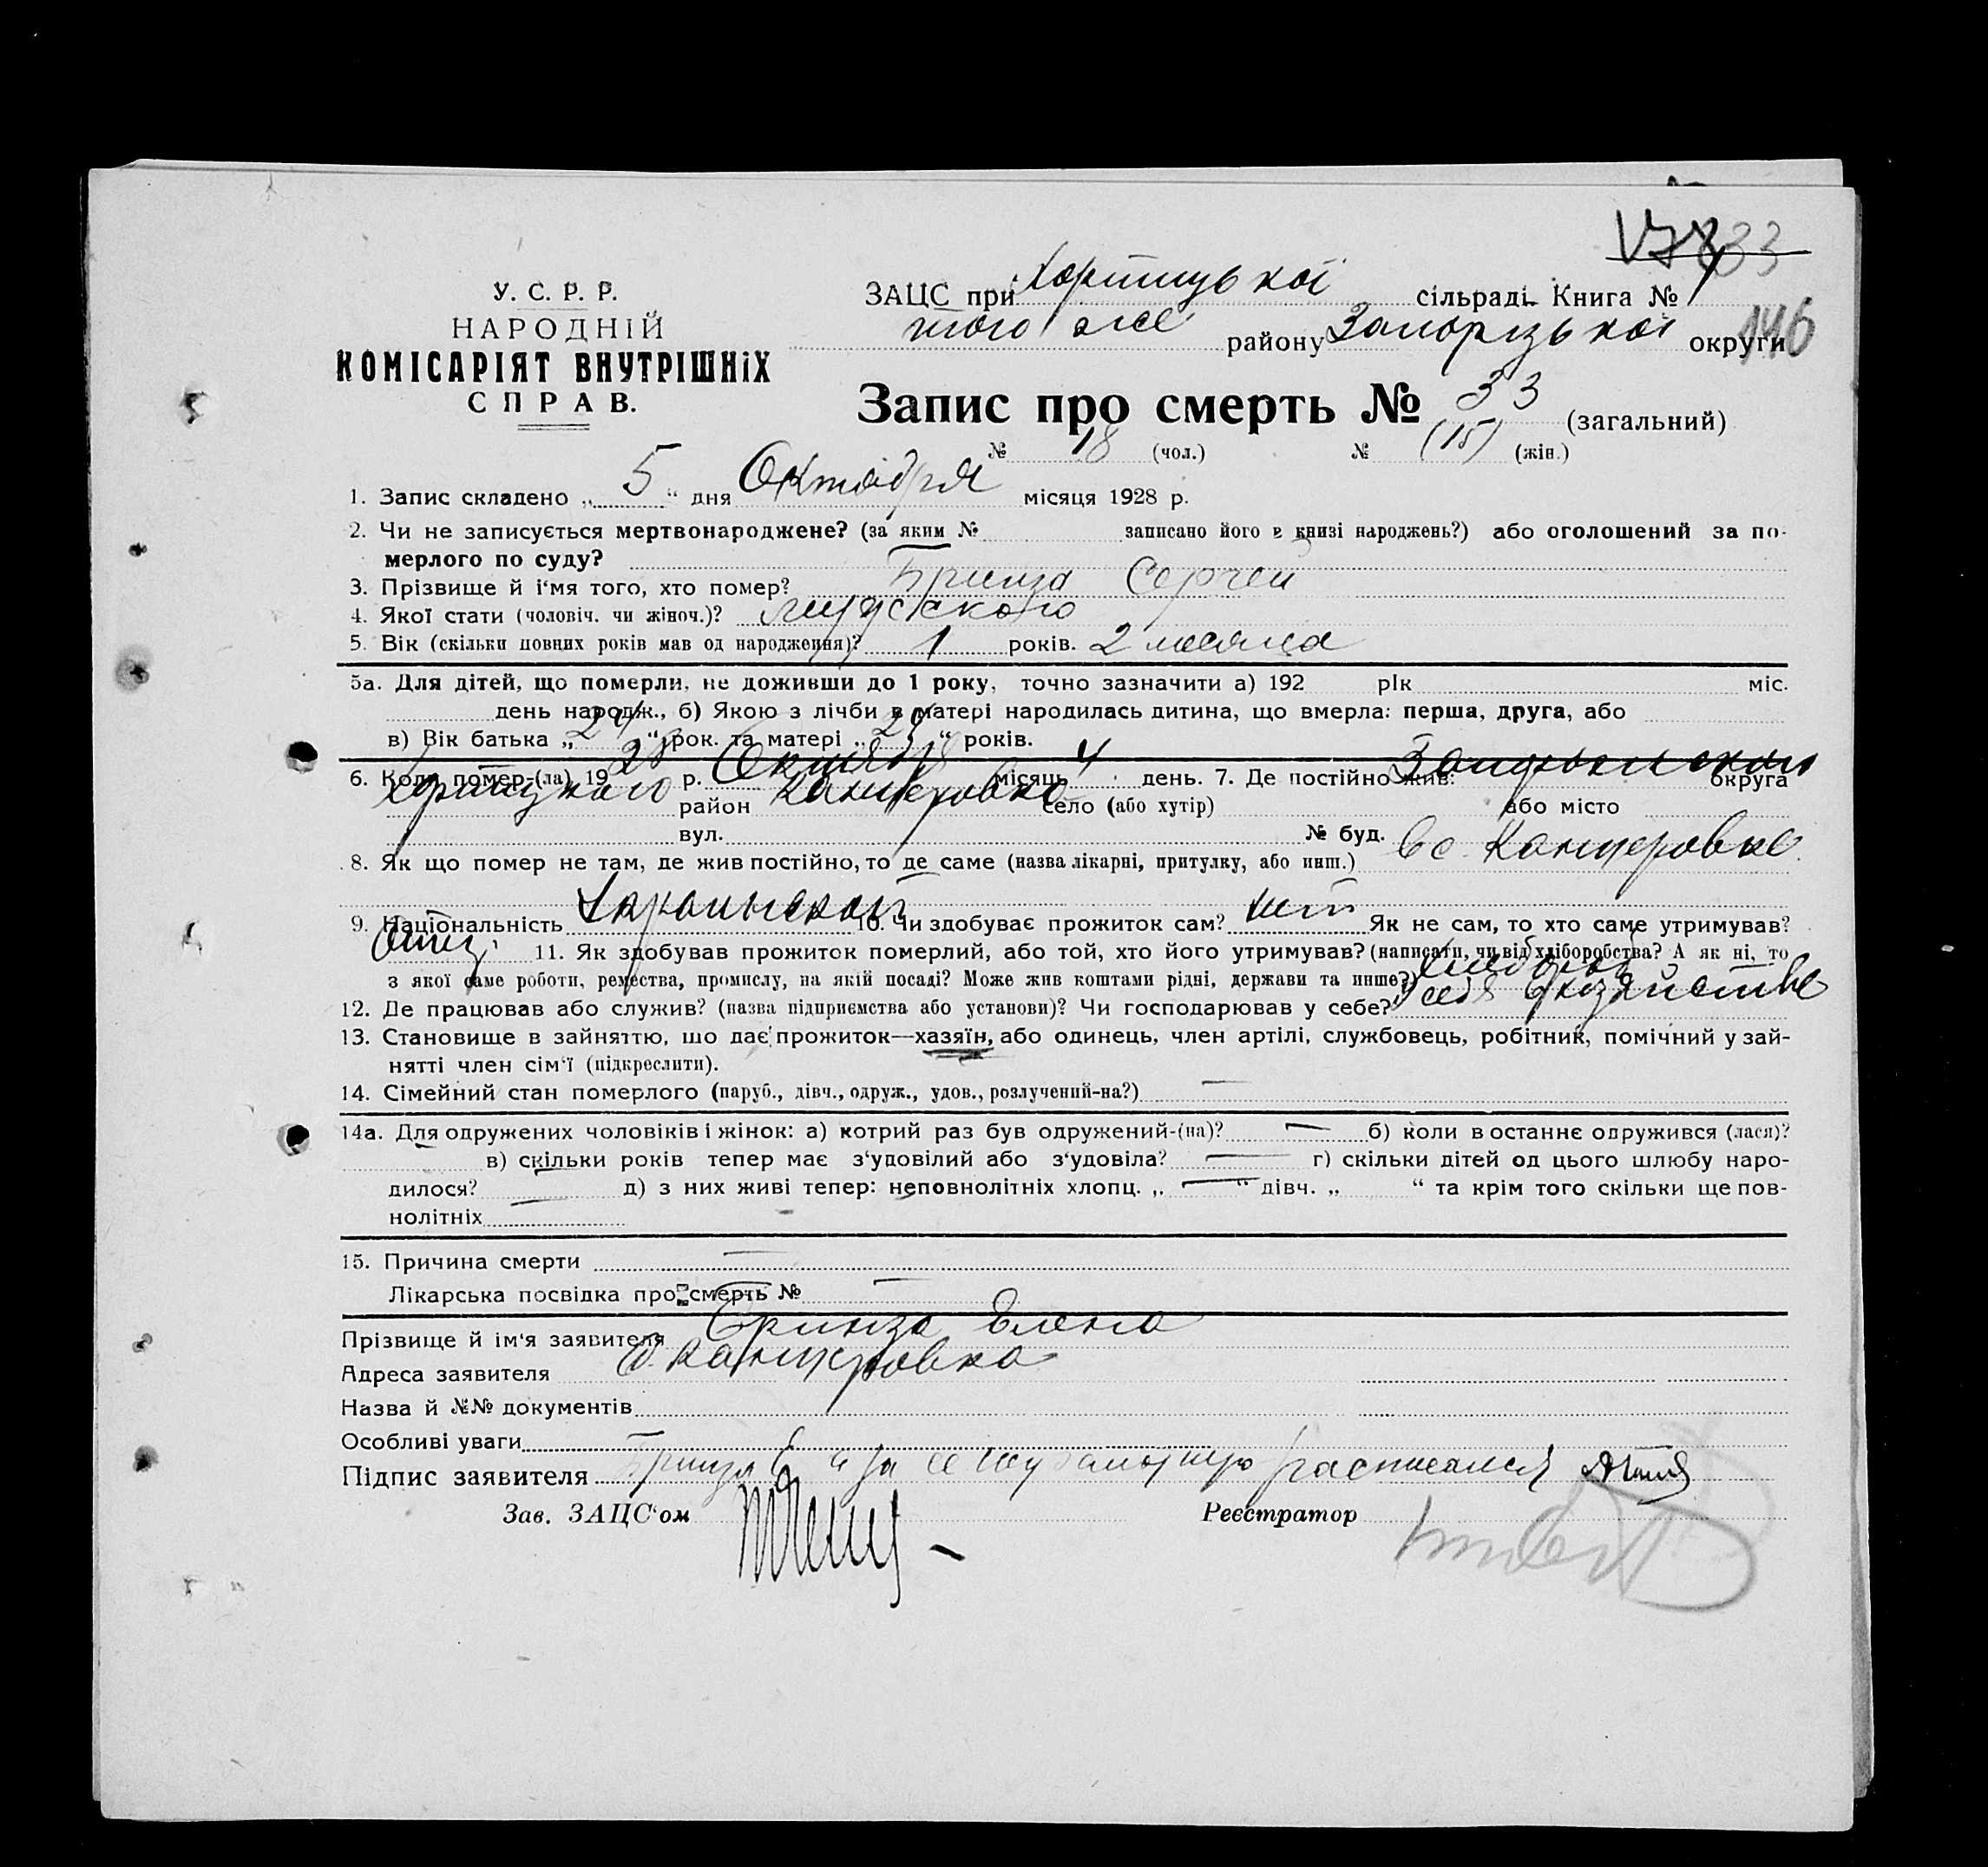 33
У. С. Р. Р.
НАРОДНІЙ
КОМІСАРІЯТ ВНУТРІШНІХ
СПРАВ.
ЗАЦС при Хортицької сільраді Книга №
того же району Запорізької округи 146
Запис про смерть № 33 (загальний)
№ 18 (чол.) № (15) (жін.)
1. Запис складено „ 5 “ дня Октября місяця 1928 р.
2. Чи не записується мертвонароджене? (за яким № записано його в книзі народжень?) або оголошений за по-
мерлого по суду?
3. Прізвище й і‘мя того, хто помер? Бринза Сергей
4. Якої стати (чоловіч. чи жіноч.)? мужского
5. Вік (скільки повних років мав од народження)? 1 років. 2 месяца
5а. Для дітей, що померли, не доживши до 1 року, точно зазначити а) 192 рік міс.
день народж., б) Якою з лічби в матері народилась дитина, що вмерла: перша, друга, або
в) Вік батька „ 24 “ рок. та матері „ 24 “ років.
6. Коли помер-(ла) 19 28 р. Октября місяць 4 день. 7. Де постійно жив: округа
Хортицкого район Канцеровка село (або хутір) або місто
вул. № буд.
8. Як що помер не там, де жив постійно, то де саме (назва лікарні, притулку, або инш.) в с. Канцеровке
9. Національність Украинской 10. Чи здобуває прожиток сам? нет Як не сам, то хто саме утримував?
Отец. 11. Як здобував прожиток померлий, або той, хто його утримував? (написати, чи від хліборобства? А як ні, то
з якої саме роботи, ремества, промислу, на якій посаді? Може жив коштами рідні, держави та инше?) хлебороб
12. Де працював або служив? (назва підприємства або установи)? Чи господарював у себе? У себя в хозяйстве
13. Становище в зайняттю, що дає прожиток—хазяїн, або одинець, член артілі, службовець, робітник, помічний у зай-
нятті член сім‘ї (підкреслити).
14. Сімейний стан померлого (паруб., дівч., одруж., удов., розлучений-на?) —
14а. Для одружених чоловіків і жінок: а) котрий раз був одружений-(на)? — б) коли востаннє одружився (лася)?
— в) скільки років тепер має з‘удовілий або з‘удовіла? — г) скільки дітей од цього шлюбу наро-
дилося? — д) з них живі тепер: неповнолітніх хлопц. „ — “ дівч. „ “ та крім того скільки ще пов-
нолітніх —
15. Причина смерти —
Лікарська посвідка про смерть № —
Прізвище й ім‘я заявителя Бринза Елена
Адреса заявителя С. Канцеровка
Назва й №№ документів
Особливі уваги
Підпис заявителя Бринза Е а за ее неграмотную расписался
Зав. ЗАЦС‘ом Реєстратор